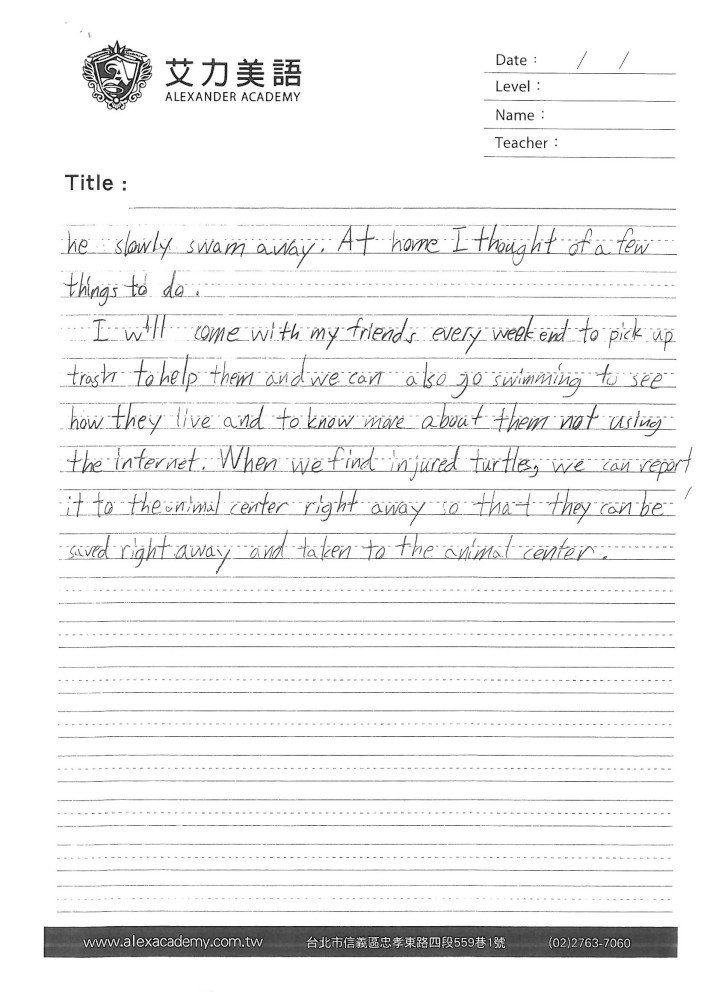 艾力美語
ALEXANDER ACADEMY
Date: / /
Level:
Name:
Teacher:
Title:
he slowly swam away. At home I thought of a few
things to do.
I will come with my friends every weekend to pick up
trash to help them and we can also go swimming to see
how they live and to know more about them not using
the internet. When we find injured turtles, we can report
it to the animal center right away so that they can be
saved right away and taken to the animal center.
www.alexacademy.com.tw 台北市信義區忠孝東路四段559巷1號 (02)2763-7060